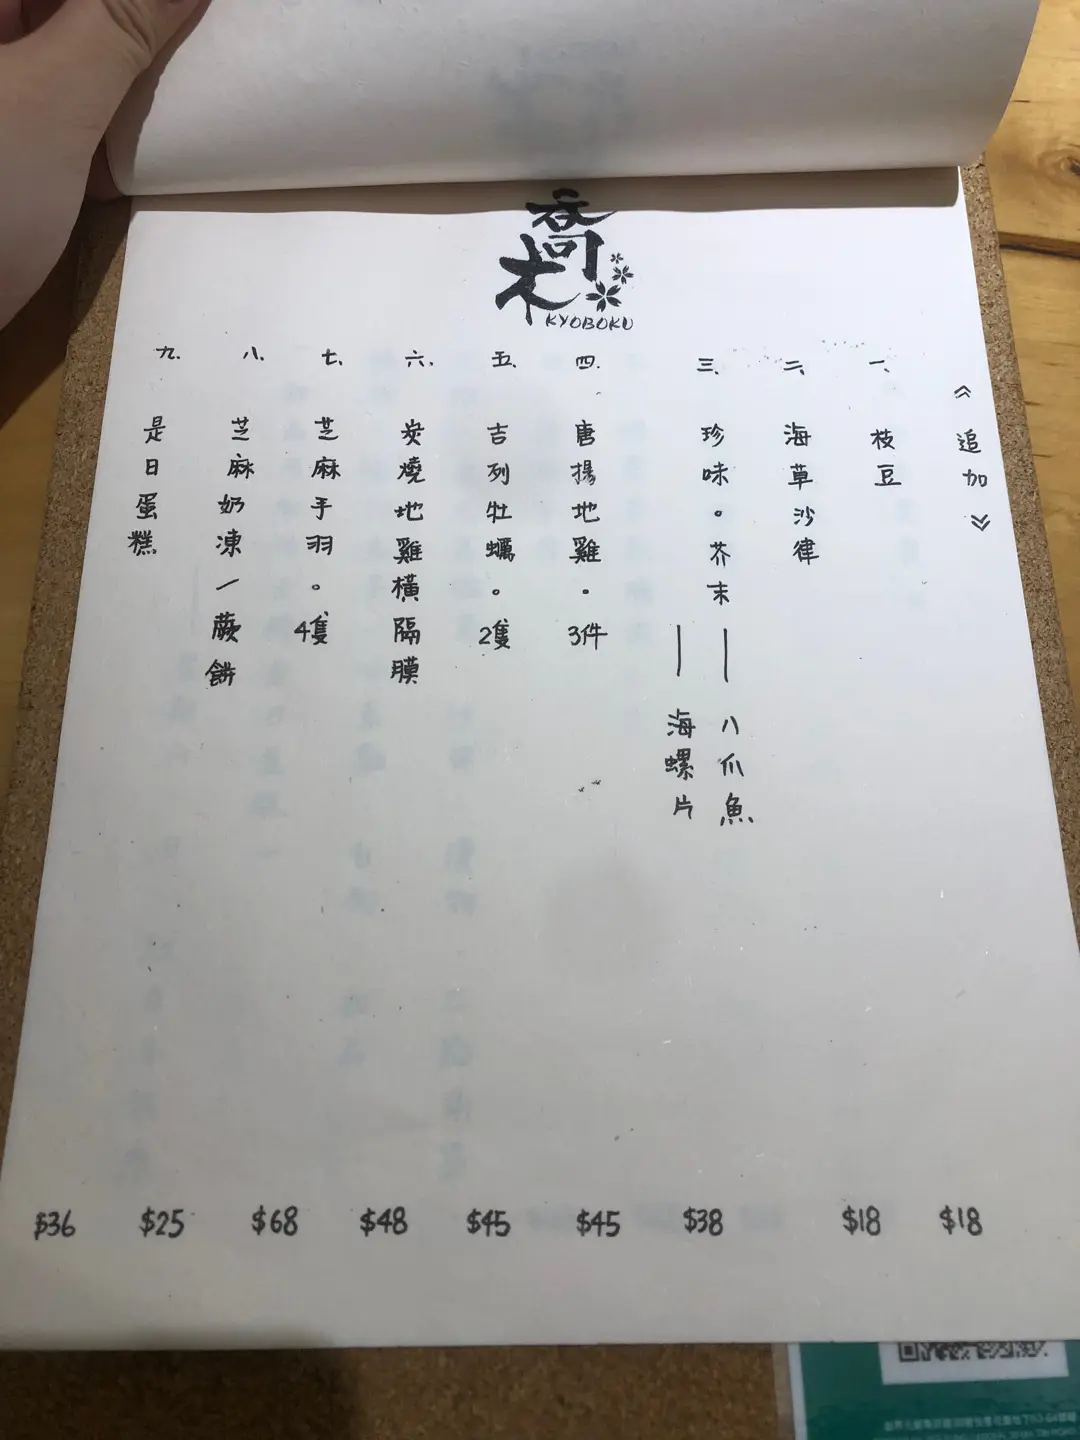 喬木
KYOBOKU
《追加》
一、枝豆 $18
二、海草沙律 $18
三、珍味。芥末
——八爪魚
——海螺片
$38
四.唐揚地雞.3件 $45
五.吉列牡蠣。2隻 $45
六.炭燒地雞橫隔膜 $48
七、芝麻手羽。4隻 $68
八、芝麻奶凍一蕨餅 $25
九.是日蛋糕 $36